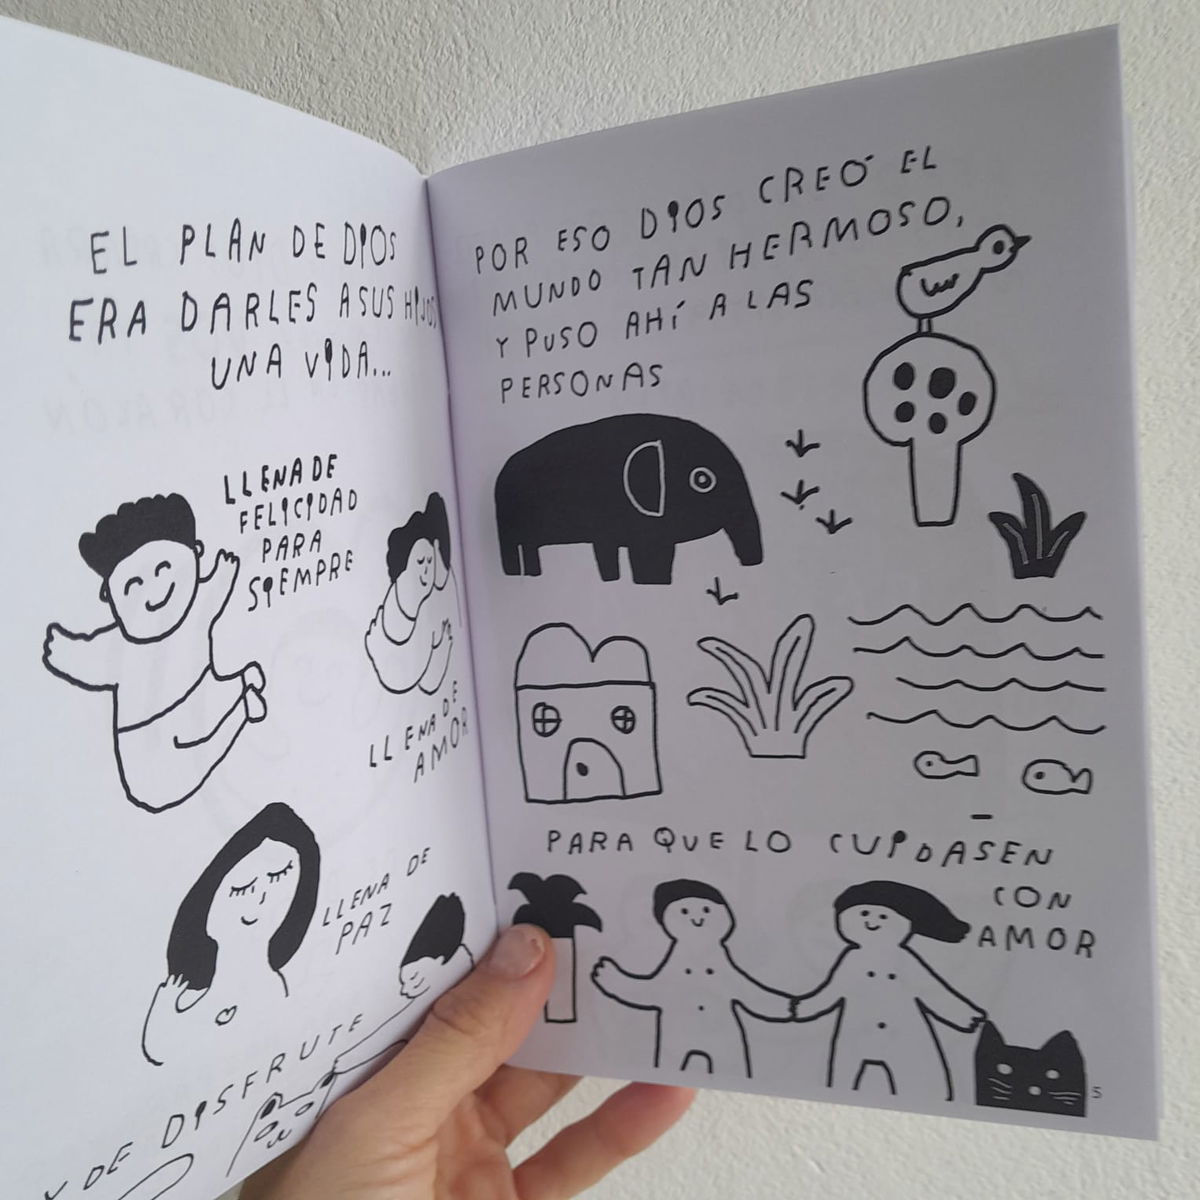 EL PLAN DE DIOS
ERA DARLES A SUS HIJOS
UNA VIDA...
LLENA DE
FELICIDAD
PARA
SIEMPRE
LLENA DE
AMOR
LLENA DE
PAZ
Y DE DISFRUTE
POR ESO DIOS CREÓ EL
MUNDO TAN HERMOSO,
Y PUSO AHÍ A LAS
PERSONAS
PARA QUE LO CUIDASEN
CON
AMOR
5